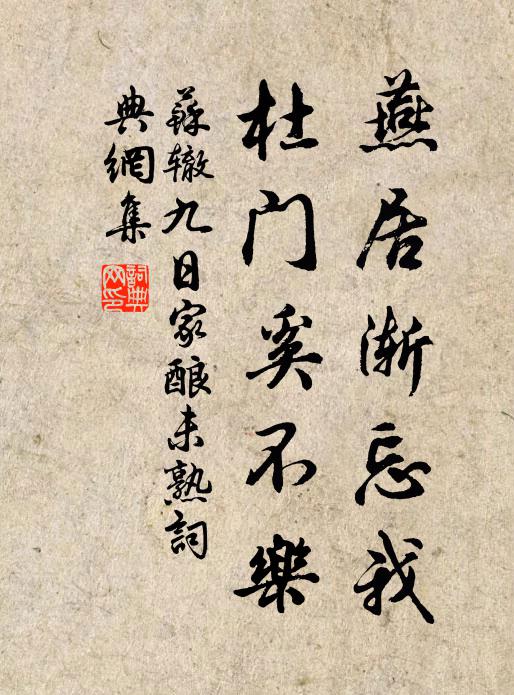 燕居渐忘我
杜门奚不樂
蘇辙九日家酿未熟詞
典網集
詞典
网印